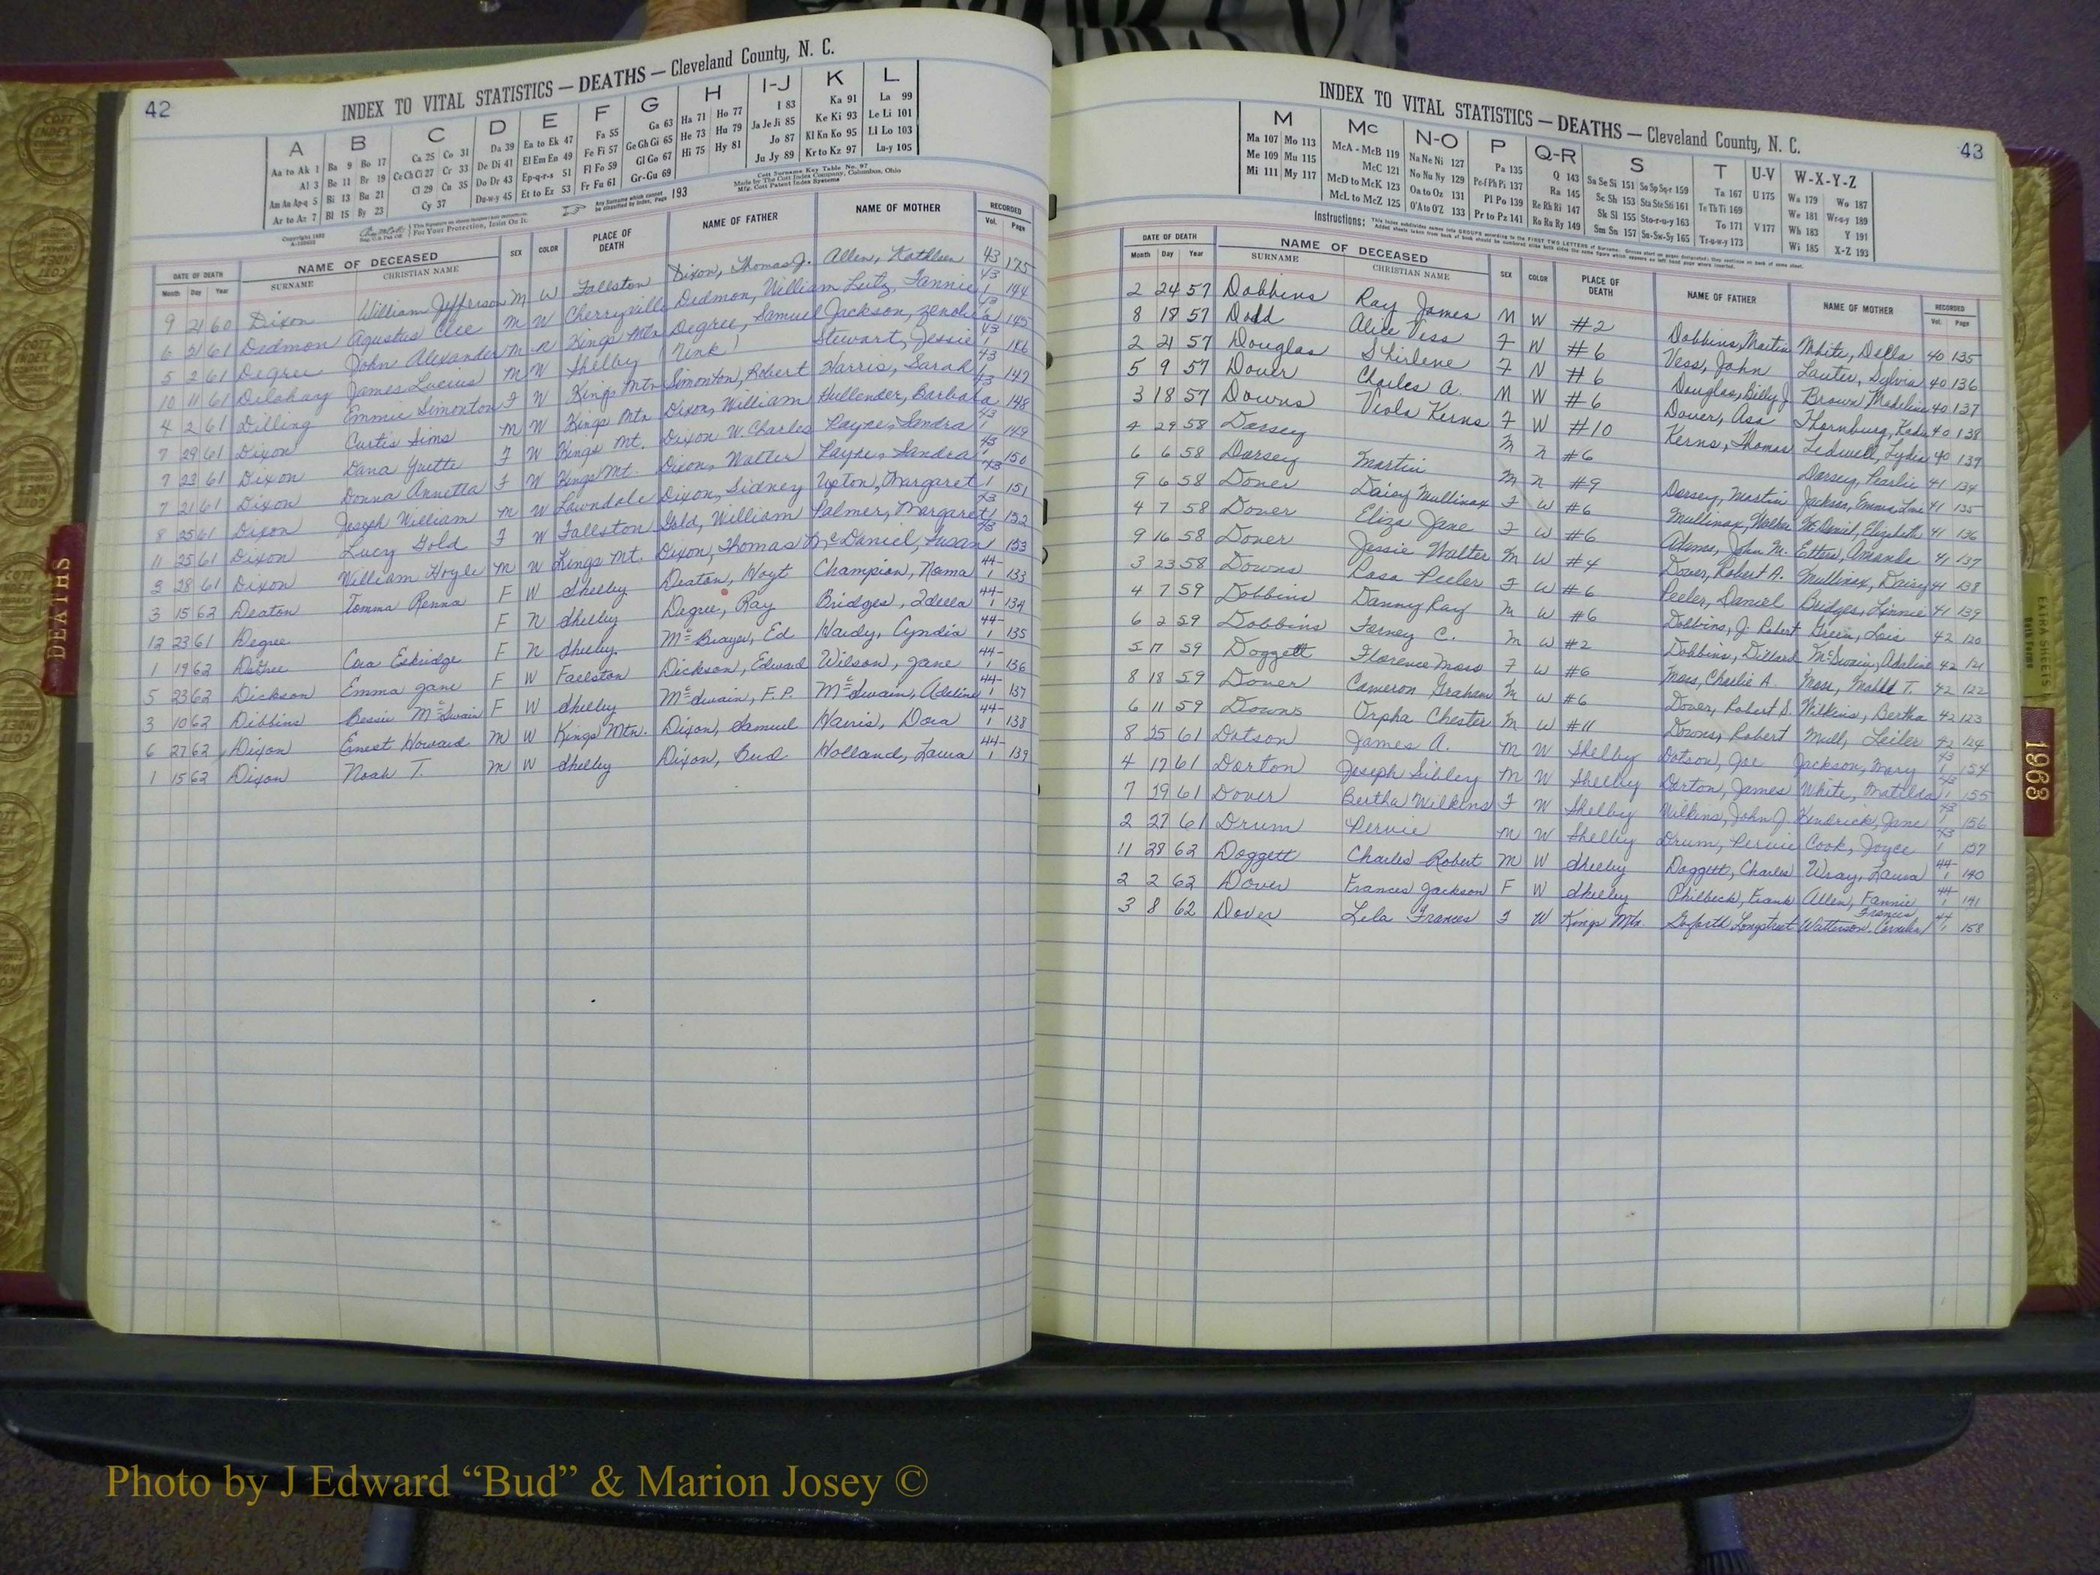 42
INDEX TO VITAL STATISTICS — DEATHS — Cleveland County, N. C.
A B C D E F G H I-J K L
Aa to Ak 1 Ba 9 Bo 17 Ca 25 Co 31 Da 39 Ea to Ek 47 Fa 55 Ga 63 Ha 71 Ho 77 I 83 Ka 91 La 99
Al 3 Be 11 Br 19 Ce Ch Ci 27 Cr 33 De Di 41 El Em En 49 Fe Fi 57 Ge Gh Gi 65 He 73 Hu 79 Ja Je Ji 85 Ke Ki 93 Le Li 101
Am An Ap-q 5 Bi 13 Bu 21 Cl 29 Cu 35 Do Dr 43 Ep-q-r-s 51 Fl Fo 59 Gl Go 67 Hi 75 Hy 81 Jo 87 Kl Kn Ko 95 Ll Lo 103
Ar to Az 7 Bl 15 By 23 Cy 37 Du-w-y 45 Et to Ez 53 Fr Fu 61 Gr-Gu 69 Ju Jy 89 Kr to Kz 97 Lu-y 105
Any Surname which cannot be classified by Index, Page 193
Cott Surname Key Table No. 97
Made by The Cott Index Company, Columbus, Ohio
Mfg. Cott Patent Index Systems
For Your Protection, Insist On It.
DATE OF DEATH NAME OF DECEASED SEX COLOR PLACE OF DEATH NAME OF FATHER NAME OF MOTHER RECORDED
Month Day Year SURNAME CHRISTIAN NAME Vol. Page
9 21 60 Dixon William Jefferson M W Fallston Dixon, Thomas J. Allen, Kathleen 43 175
6 21 61 Dedmon Agustus Clee M W Cherryville Dedmon, William Lutz, Fannie 43 1 144
5 2 61 Degree John Alexander M N Kings Mtn Degree, Samuel Jackson, Zenolia 43 145
10 11 61 Delehay James Lucius M W Shelby (Unk) Stewart, Jessie 43 1 146
4 2 61 Dilling Emmie Simonton F W Kings Mtn Simonton, Robert Harris, Sarah 43 1 147
7 29 61 Dixon Curtis Sims M W Kings Mtn Dixon, William Hullender, Barbara 43 148
7 23 61 Dixon Dana Yvette F W Kings Mt. Dixon W. Charles Payne, Sandra 43 1 149
7 21 61 Dixon Donna Annetta F W Kings Mt. Dixon, Walter Payne, Sandra 43 1 150
8 25 61 Dixon Joseph William M W Lawndale Dixon, Sidney Upton, Margaret 43 1 151
11 25 61 Dixon Lucy Gold F W Fallston Gold, William Palmer, Margaret 23 1 152
3 28 61 Dixon William Hoyle M W Kings Mt. Dixon, Thomas McDaniel, Susan 43 1 153
3 15 62 Deaton Tomma Renna F W Shelby Deaton, Hoyt Champion, Norma 44 1 133
12 23 61 Degree F N Shelby Degree, Ray Bridges, Idella 44 1 134
1 19 62 Degree Cora Eskridge F N Shelby McBrayer, Ed Hardy, Cyndia 44 1 135
5 23 62 Dickson Emma Jane F W Fallston Dickson, Edward Wilson, Jane 44 1 136
3 10 62 Dibbins Bessie McSwain F W Shelby McSwain, F.P. McSwain, Adeline 44 1 137
6 27 62 Dixon Ernest Howard M W Kings Mtn. Dixon, Samuel Harris, Dora 44 1 138
1 15 62 Dixon Noah T. M W Shelby Dixon, Bud Holland, Laura 44 1 139
43
INDEX TO VITAL STATISTICS — DEATHS — Cleveland County, N. C.
M Mc N-O P Q-R S T U-V W-X-Y-Z
Ma 107 Mo 113 McA - McB 119 Na Ne Ni 127 Pa 135 Q 143 Sa Se Si 151 So Sp Sq-r 159 Ta 167 U 175 Wa 179 Wo 187
Me 109 Mu 115 McC 121 No Nu Ny 129 Pe-f Ph Pi 137 Ra 145 Sc Sh 153 Sta Ste Sti 161 Te Th Ti 169 We 181 Wr-u-y 189
Mi 111 My 117 McD to McK 123 Oa to Oz 131 Pl Po 139 Re Rh Ri 147 Sk Sl 155 Sto-r-u-y 163 To 171 V 177 Wh 183 Y 191
McL to McZ 125 O'A to O'Z 133 Pr to Pz 141 Ro Ru Ry 149 Sm Sn 157 Su-Sw-Sy 165 Tr-u-w-y 173 Wi 185 X-Z 193
Instructions:
DATE OF DEATH NAME OF DECEASED SEX COLOR PLACE OF DEATH NAME OF FATHER NAME OF MOTHER RECORDED
Month Day Year SURNAME CHRISTIAN NAME Vol. Page
2 24 57 Dobbins Ray James M W #2 Dobbins, Martin White, Della 40 135
8 18 57 Dodd Alice Vess F W #6 Vess, John Lauter, Sylvia 40 136
2 21 57 Douglas Shirlene F N #6 Douglas, Billy J Brown Madeline 40 137
5 9 57 Dover Charles A. M W #6 Dover, Asa Thornburg, Kada 40 138
3 18 57 Downs Viola Kerns F W #10 Kerns, Thomas Ledwell, Lydia 40 139
4 29 58 Dorsey M N #6 Dorsey, Pearlie 41 134
6 6 58 Dorsey Martin M N #9 Dorsey, Martin Jackson, Emma Lou 41 135
9 6 58 Dover Daisy Mullinax F W #6 Mullinax, Walker McDaniel, Elizabeth 41 136
4 7 58 Dover Eliza Jane F W #6 Adams, John M. Etters, Amanda 41 137
9 16 58 Dover Jessie Walter M W #4 Dover, Robert A. Mullinax, Daisy 41 138
3 23 58 Downs Rosa Peeler F W #6 Peeler, Daniel Bridges, Linnie 41 139
4 7 59 Dobbins Danny Ray M W #6 Dobbins, J. Robert Green, Lois 42 120
6 2 59 Dobbins Forney C. M W #2 Dobbins, Dillard McSwain, Adeline 42 121
5 17 59 Doggett Florence Moss F W #6 Moss, Charlie A. Moss, T. 42 122
8 18 59 Dover Cameron Graham M W #6 Dover, Robert S. Wilkins, Bertha 42 123
6 11 59 Downs Orpha Chester M W #11 Downs, Robert Mull, Leiler 42 124
8 25 61 Dotson James A. M W Shelby Dotson, Joe Jackson, Mary 43 1 154
4 17 61 Dorton Joseph Sibley M W Shelby Dorton, James White, Matilda 43 1 155
7 19 61 Dover Bertha Wilkins F W Shelby Wilkins, John J. Kendrick, Jane 43 1 156
2 27 61 Drum Pervie M W Shelby Drum, Pervie Cook, Joyce 43 1 157
11 28 62 Doggett Charles Robert M W Shelby Doggett, Charles Wray, Laura 44 1 140
2 2 62 Dover Frances Jackson F W Shelby Philbeck, Frank Allen, Fannie 44 1 141
3 8 62 Dover Lela Frances F W Kings Mtn Goforth Longstreet Watterson, Frances Cornelia 44 1 158
DEATHS
1963
EXTRA SHEETS
Photo by J Edward “Bud” & Marion Josey ©